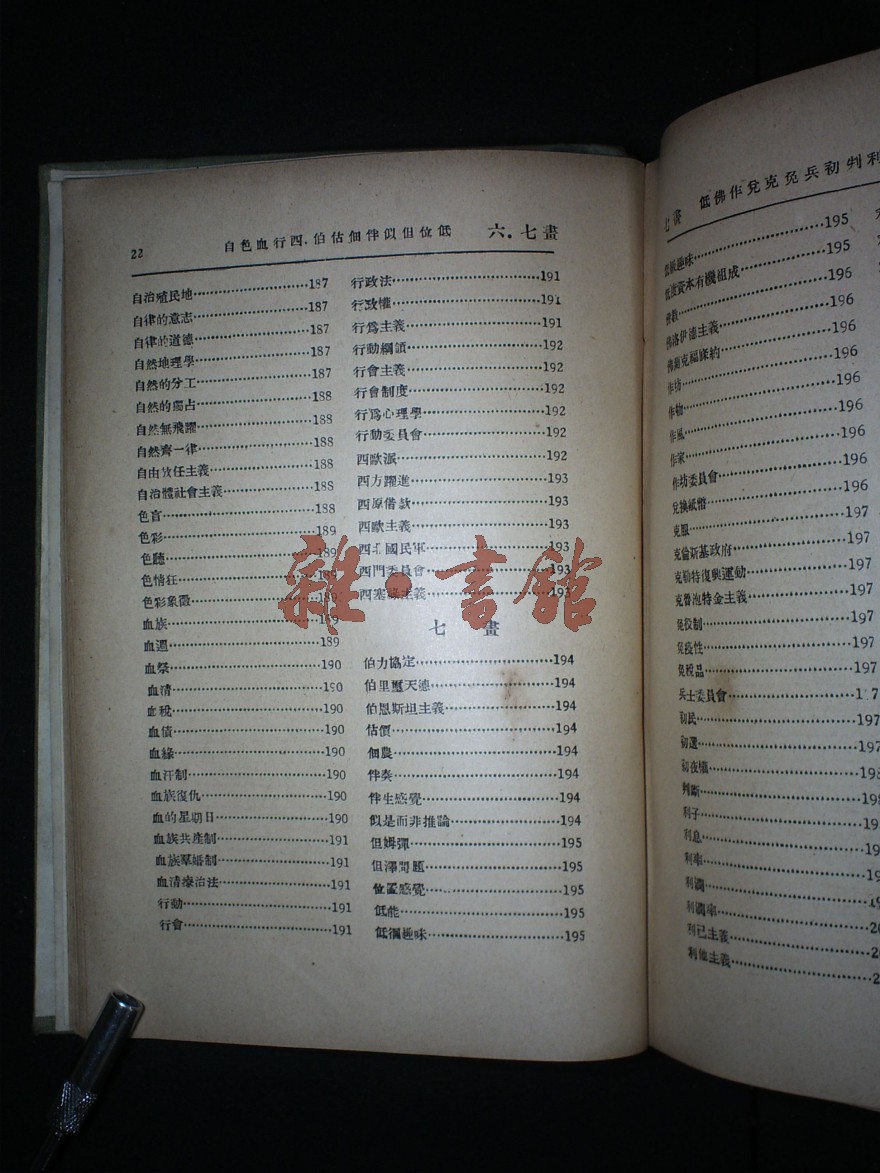 22
自色血行西.伯估佃伴似但位低
六.七畫
自治殖民地 187
自律的意志 187
自律的道德 187
自然地理學 187
自然的分工 187
自然的獨占 188
自然無飛躍 188
自然齊一律 188
自由放任主義 188
自治體社會主義 188
色盲 188
色彩 189
色聽 189
色情狂 189
色彩象徵 189
血族 189
血週 189
血祭 190
血清 190
血稅 190
血債 190
血緣 190
血汗制 190
血族復仇 190
血的星期日 190
血族共產制 191
血族羣婚制 191
血清療治法 191
行動 191
行會 191
行政法 191
行政權 191
行為主義 191
行動綱領 192
行會主義 192
行會制度 192
行為心理學 192
行動委員會 192
西歐派 192
西方躍進 193
西原借款 193
西歐主義 193
西北國民軍 193
西門委員會 193
西塞 主義 193
七 畫
伯力協定 194
伯里璽天德 194
伯恩斯坦主義 194
估價 194
佃農 194
伴奏 194
伴生感覺 194
似是而非推論 194
但姆彈 195
但澤問題 195
位置感覺 195
低能 195
低徊趣味 195
七畫 低佛作兌克免兵初判利
低級趣味 195
低度資本有機組成 195
佛教 196
佛洛伊德主義 196
佛蘭克福條約 196
作坊 196
作物 196
作風 196
作家 196
作坊委員會 196
兌換紙幣 197
克服 197
克倫斯基政府 197
克勒特復興運動 197
克魯泡特金主義 197
免役制 197
免疫性 197
免稅品
兵士委員會
初民 197
初選
初夜權
判斷
利子
利息
利率
利潤
利潤率
利己主義
利他主義
雜·書館